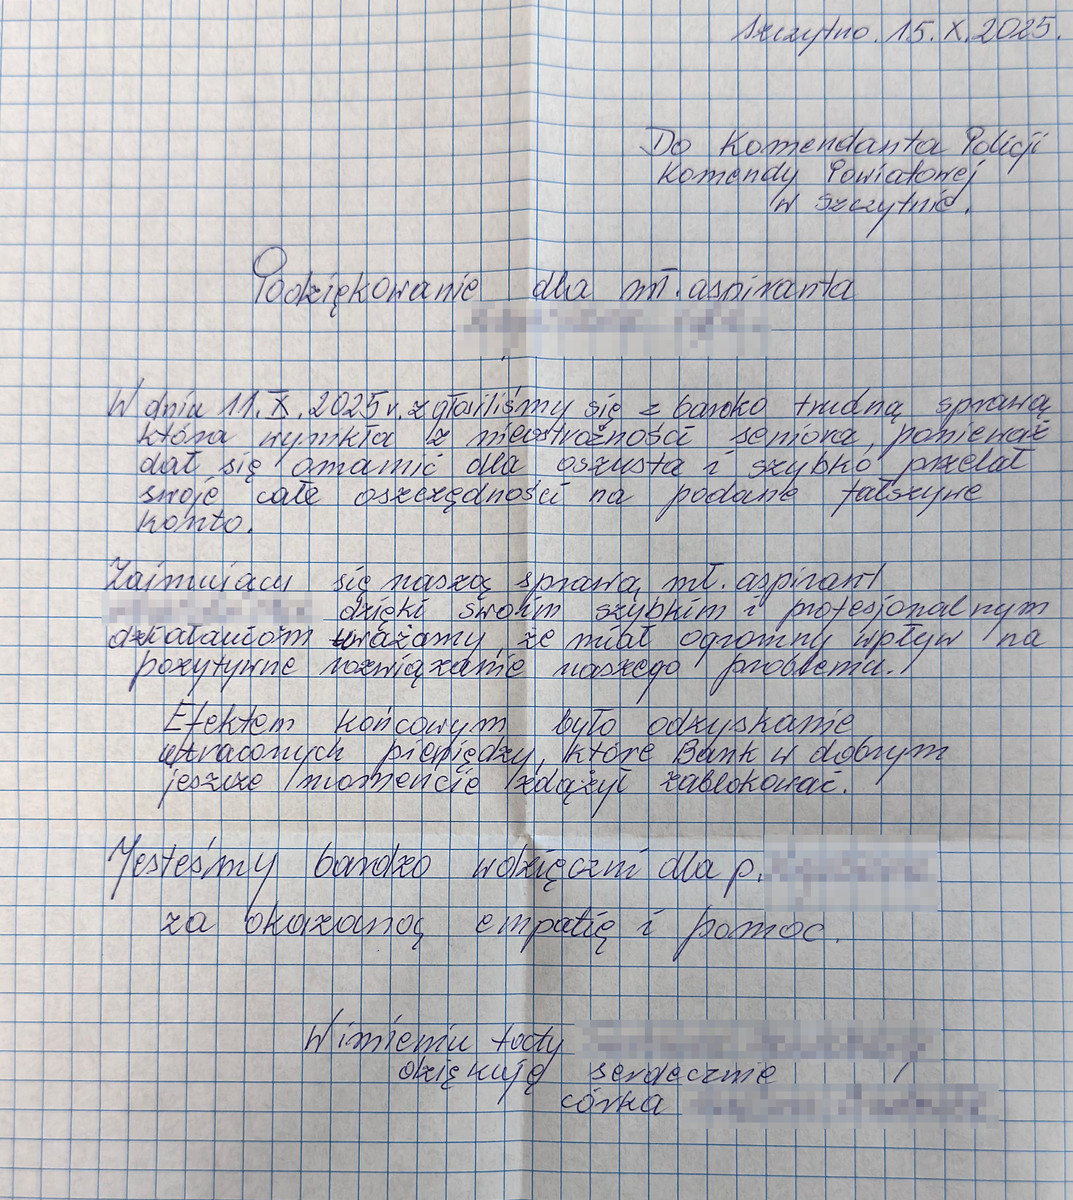 Szczytno. 15.X.2025.
Do Komendanta Policji
Komendy Powiatowej
w Szczytnie.
Podziękowanie dla mł. aspiranta
W dniu 11.X.2025r. zgłosiliśmy się z bardzo trudną sprawą
która wynikła z nieostrożności seniora, ponieważ
dał się omamić dla oszusta i szybko przelał
swoje całe oszczędności na podane fałszywe
konto.
Zajmujący się naszą sprawą mł. aspirant
dzięki swoim szybkim i profesjonalnym
działaniom uważamy, że miał ogromny wpływ na
pozytywne rozwiązanie naszego problemu.
Efektem końcowym było odzyskanie
utraconych pieniędzy, które Bank w dobrym
jeszcze momencie zdążył zablokować.
Jesteśmy bardzo wdzięczni dla p.
za okazaną empatię i pomoc.
W imieniu taty
dziękuję serdecznie
córka